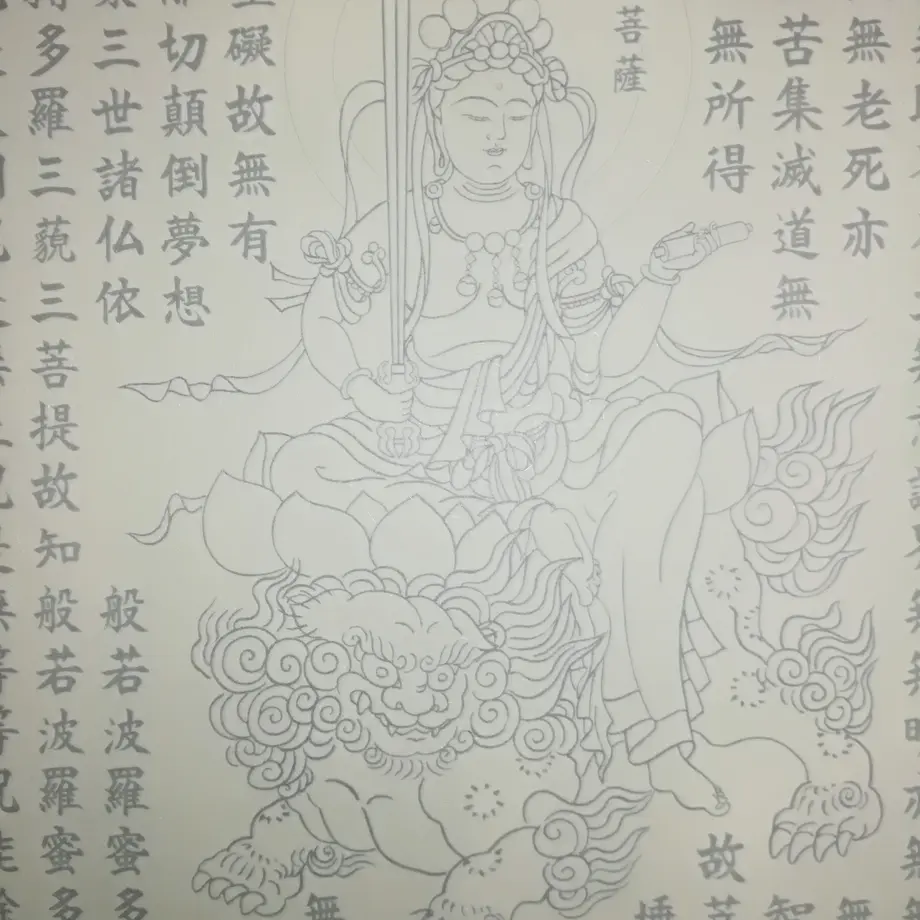 無老死亦
苦集滅道無
無所得
故菩
菩薩
無
礙故無有
切顛倒夢想
三世諸仏依
般若波羅蜜多
多羅三藐三菩提故知般若波羅蜜多